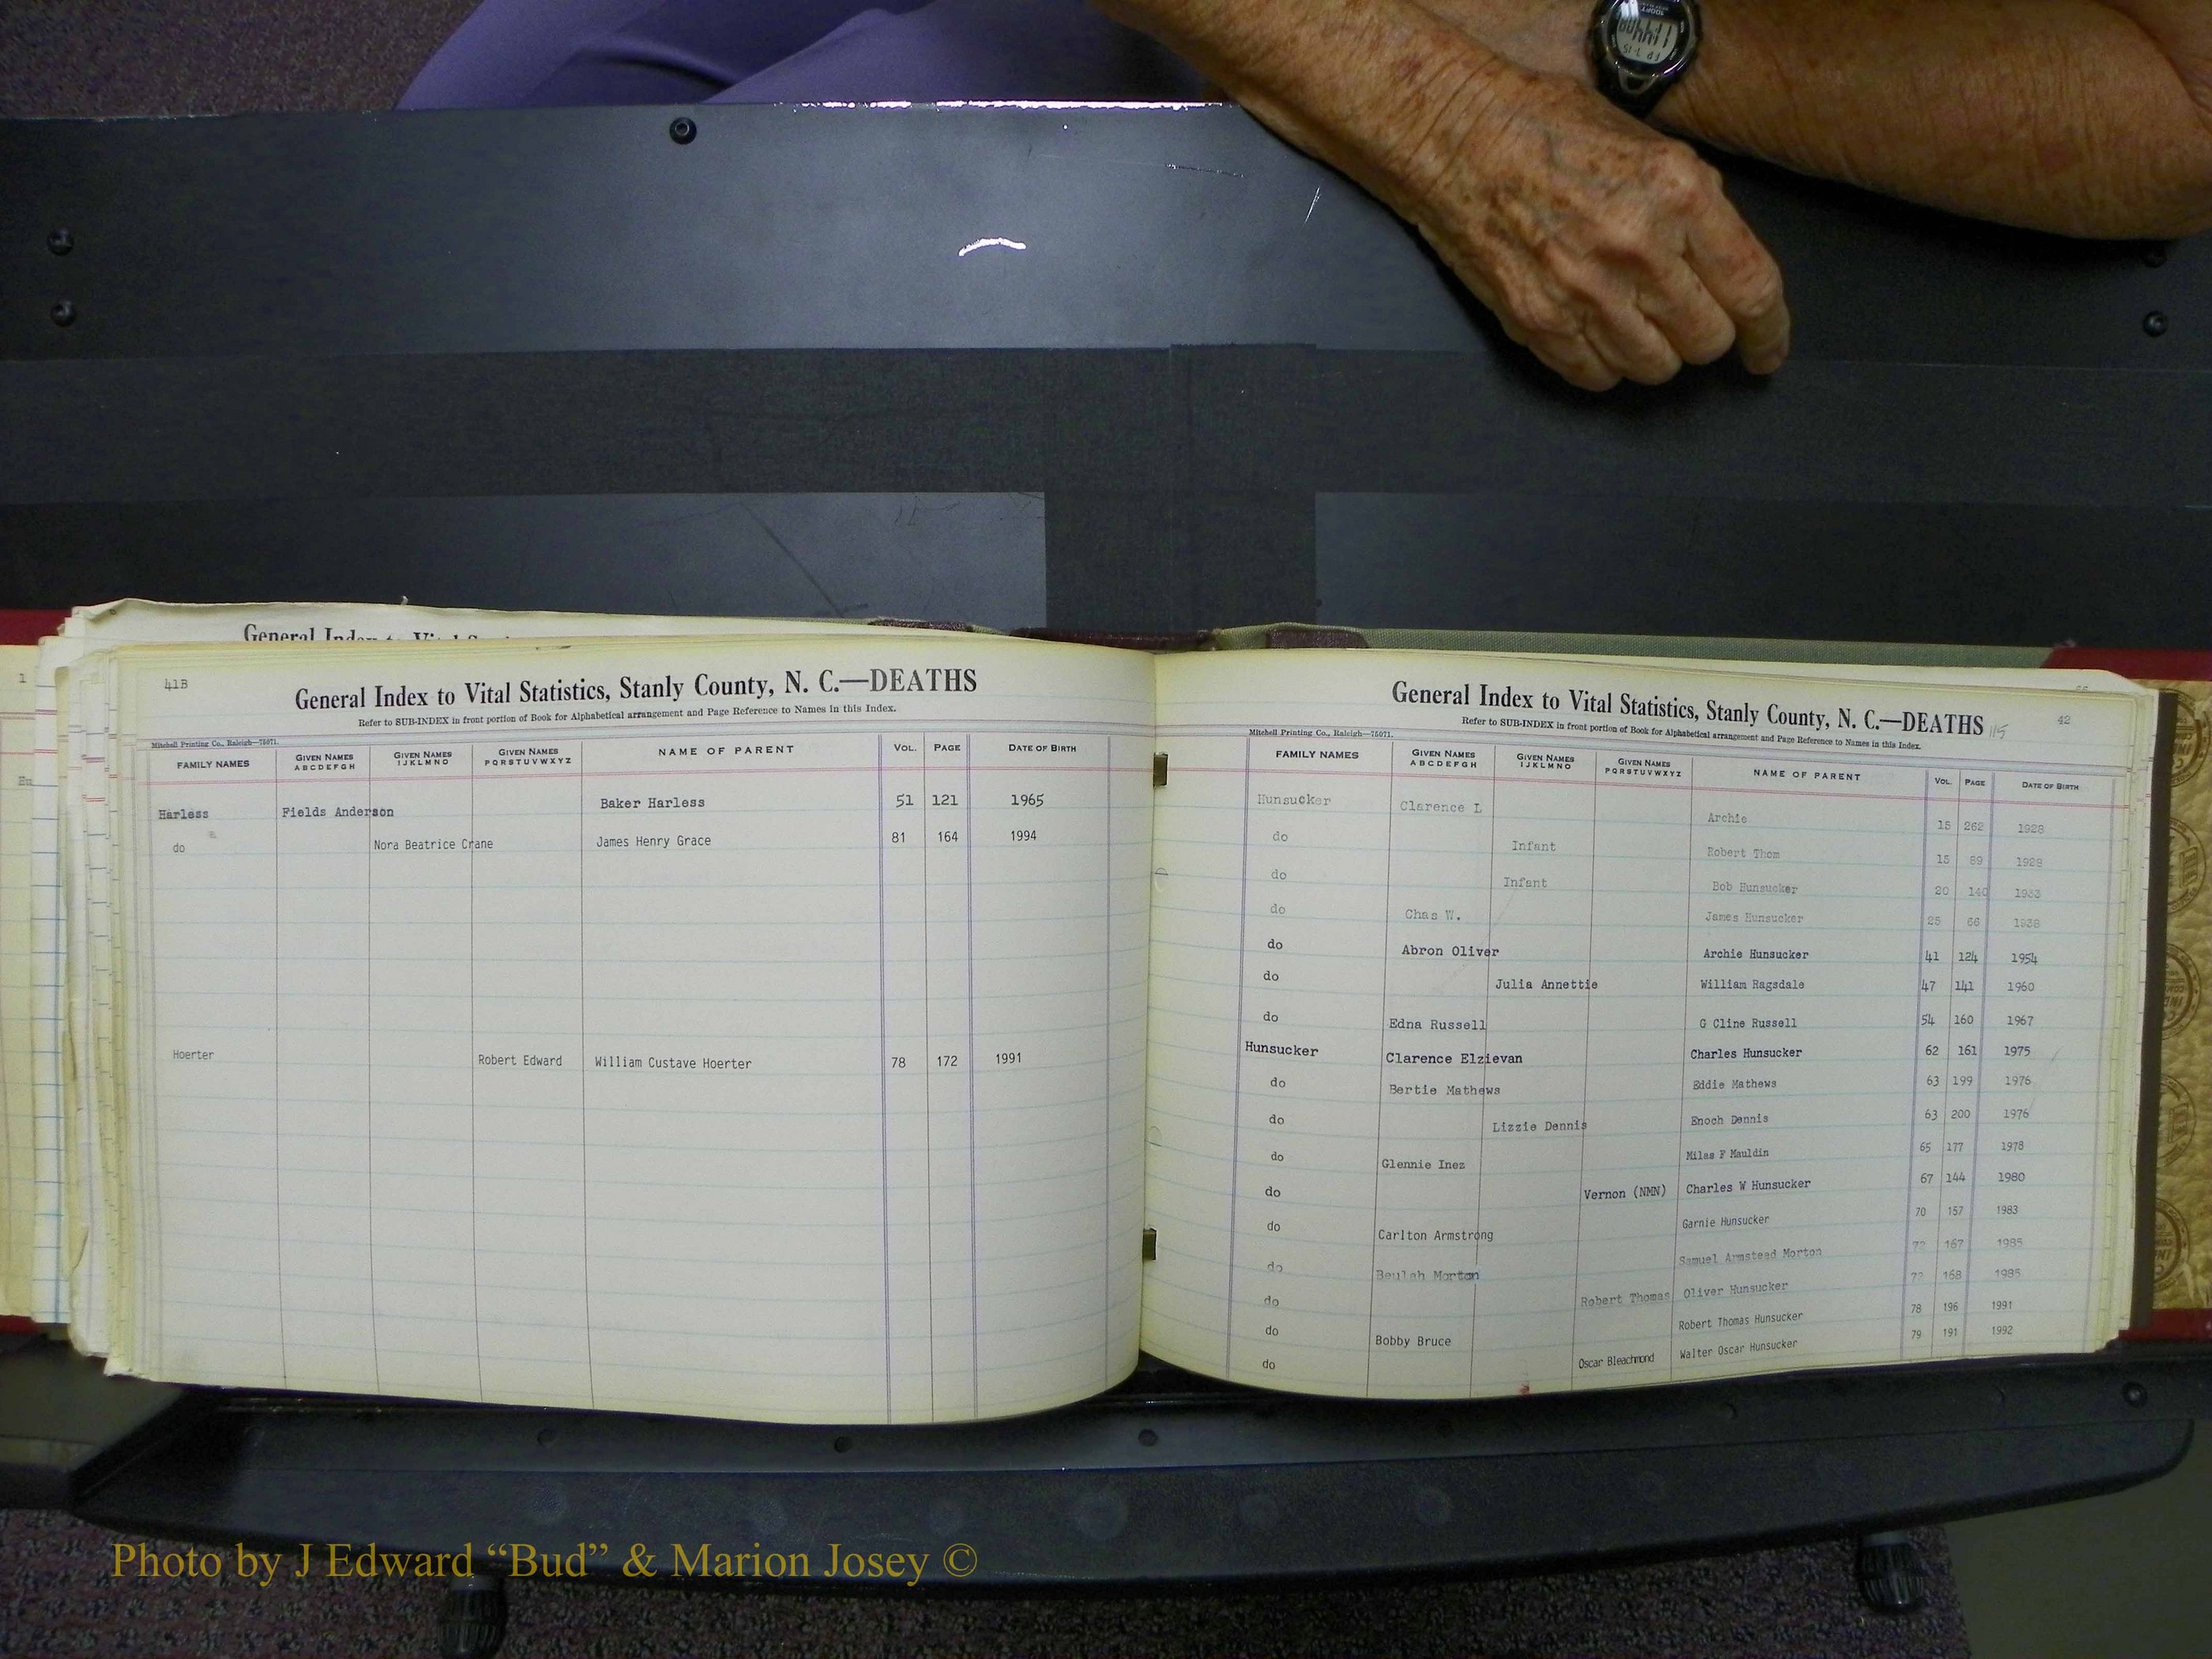 General Index to Vital S
41B
General Index to Vital Statistics, Stanly County, N. C.—DEATHS
Refer to SUB-INDEX in front portion of Book for Alphabetical arrangement and Page Reference to Names in this Index.
Mitchell Printing Co., Raleigh—75071.
FAMILY NAMES GIVEN NAMES ABCDEFGH GIVEN NAMES IJKLMNO GIVEN NAMES PQRSTUVWXYZ NAME OF PARENT VOL. PAGE DATE OF BIRTH
Harless Fields Anderson Baker Harless 51 121 1965
do Nora Beatrice Crane James Henry Grace 81 164 1994
Hoerter Robert Edward William Custave Hoerter 78 172 1991
42
General Index to Vital Statistics, Stanly County, N. C.—DEATHS 115
Refer to SUB-INDEX in front portion of Book for Alphabetical arrangement and Page Reference to Names in this Index.
Mitchell Printing Co., Raleigh—75071.
FAMILY NAMES GIVEN NAMES ABCDEFGH GIVEN NAMES IJKLMNO GIVEN NAMES PQRSTUVWXYZ NAME OF PARENT VOL. PAGE DATE OF BIRTH
Hunsucker Clarence L Archie 15 262 1928
do Infant Robert Thom 15 89 1928
do Infant Bob Hunsucker 20 140 1933
do Chas W. James Hunsucker 25 66 1938
do Abron Oliver Archie Hunsucker 41 124 1954
do Julia Annettie William Ragsdale 47 141 1960
do Edna Russell G Cline Russell 54 160 1967
Hunsucker Clarence Elzievan Charles Hunsucker 62 161 1975
do Bertie Mathews Eddie Mathews 63 199 1976
do Lizzie Dennis Enoch Dennis 63 200 1976
do Glennie Inez Milas F Mauldin 65 177 1978
do Vernon (NMN) Charles W Hunsucker 67 144 1980
do Carlton Armstrong Garnie Hunsucker 70 157 1983
do Beulah Morton Samuel Armstead Morton 72 167 1985
do Robert Thomas Oliver Hunsucker 72 168 1985
do Bobby Bruce Robert Thomas Hunsucker 78 196 1991
do Oscar Bleachmond Walter Oscar Hunsucker 79 191 1992
Photo by J Edward “Bud” & Marion Josey ©